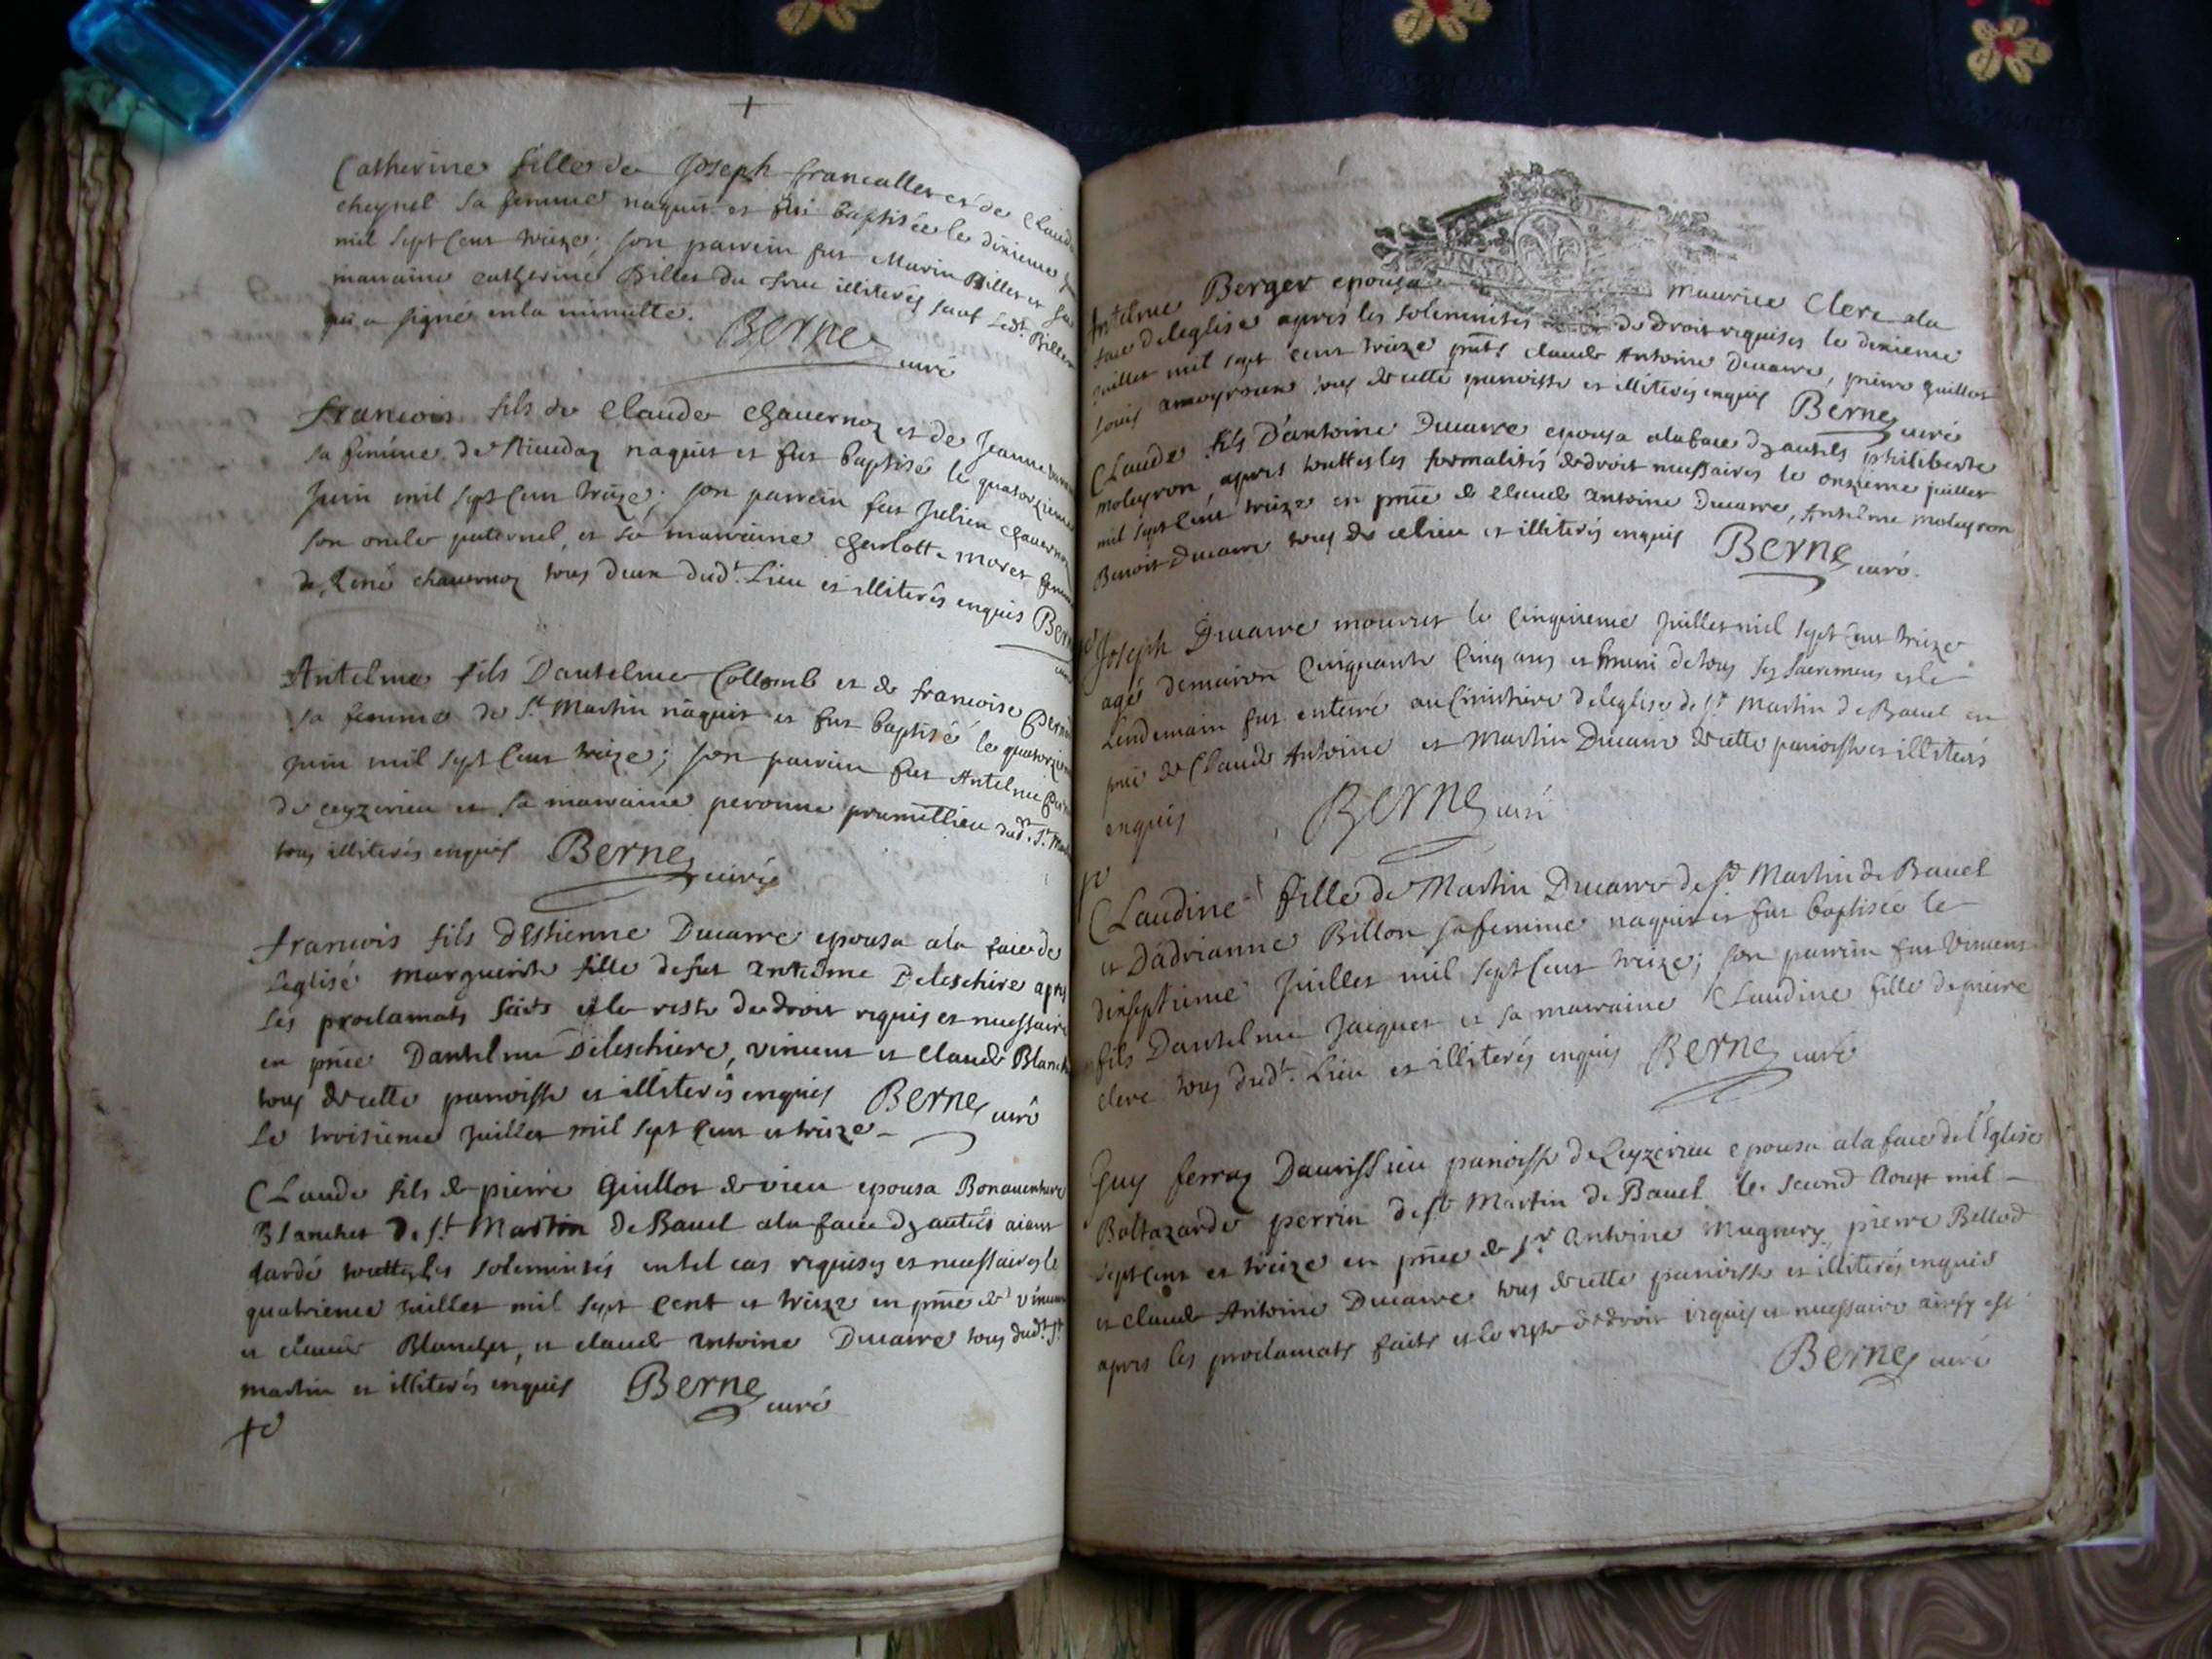 +
Catherine fille de Joseph francallet et de Claud
cheynel sa femme naquit et fut baptisée le dixieme
mil sept cent treize; son parrein fut Marin Billet et sa
marraine catherine Billet du illiterés sauf led.t Billet
qui a signé en la minutte. Berne curé
francois fils de Claude Chavernoz et de Jeanne
sa femme de naquit et fut baptisé le quatorzieme
Juin mil sept cent treize; son parrein fut Julien chavernoz
son oncle paternel, et sa marraine charlotte moret femme
de René chavernoz tous deux dud.t Lieu et illiterés enquis Bern
Antelme fils Dantelme Collomb et de francoise
sa femme de S.t Martin naquit et fut baptisé le quatorzie
Juin mil sept cent treize; son parrein fut Antelme
de ceyzerieu et sa marraine peronne prumillieu dud.t S.t Ma
tous illiterés enquis Berne curé
francois fils d'Estienne Ducarre epousa a la face de
L'eglise marguerite fille de fut antelme Deleschire apres
les proclamats faits et le reste de droit requis et necessaire
en pnce Dantelme Deleschiere, vincent et claude Blanch
tous de cette parroisse et illiterés enquis Berne curé
Le troisieme juillet mil sept cent et treize
Claude fils de pierre Guillot de vieu epousa Bonaventure
Blanchet de S.t Martin de Bavel a la face dz autels aiant
gardé touttes les solemnités en tel cas requises et necessaires le
quatrieme juillet mil sept cent et treize en pnce de vincent
et claude Blanchet, et claude antoine Ducarre tous dud.t S.t
martin et illiterés enquis Berne curé
Antelme Berger epousa maurice Clerc a la
face de leglise apres les solemnités de droit requises le dixieme
Juillet mil sept cent treize pnts claude Antoine Ducarre, pierre guillot
Louis tous de cette parroisse et illiterés enquis Berne curé
Claude fils D'antoine Ducarre epousa a la face dz autels philiberte
moleyron, apres touttes les formalités de droit necessaires le onzieme juillet
mil sept cent treize en pnce de claude antoine Ducarre, Antelme moleyron
Benoit Ducarre tous de ce lieu et illiterés enquis Berne curé.
Joseph Ducarre mourut le cinquieme juillet mil sept cent treize
agé d'environ cinquante cinq ans et muni de tous ses sacremens et le
Lendemain fut enterré au cimistiere de leglise de S.t Martin de Bavel en
pnce de Claude Antoine et Martin Ducarre de cette parroisse et illiterés
enquis Berne curé
Claudine fille de Martin Ducarre de S.t Martin de Bavel
et D'adrianne Billon sa femme naquit et fut baptisée le
dixseptieme Juillet mil sept cent treize; son parrein fut Vincent
fils Dantelme Jacquet et sa marraine Claudine fille de pierre
clerc tous dud.t Lieu et illiterés enquis Berne curé
Guy ferraz Daurissieu parroisse de Ceyzerieu epousa a la face de l'Eglise
Baltazarde perrin de S.t Martin de Bavel le second Aoust mil
sept cent et treize en pnce de S.r Antoine Mugnery, pierre Bellod
et claude Antoine Ducarre tous de cette parroisse et illiterés enquis
apres les proclamats faits et le reste de droit requis et necessaire ainsy est
Berne curé